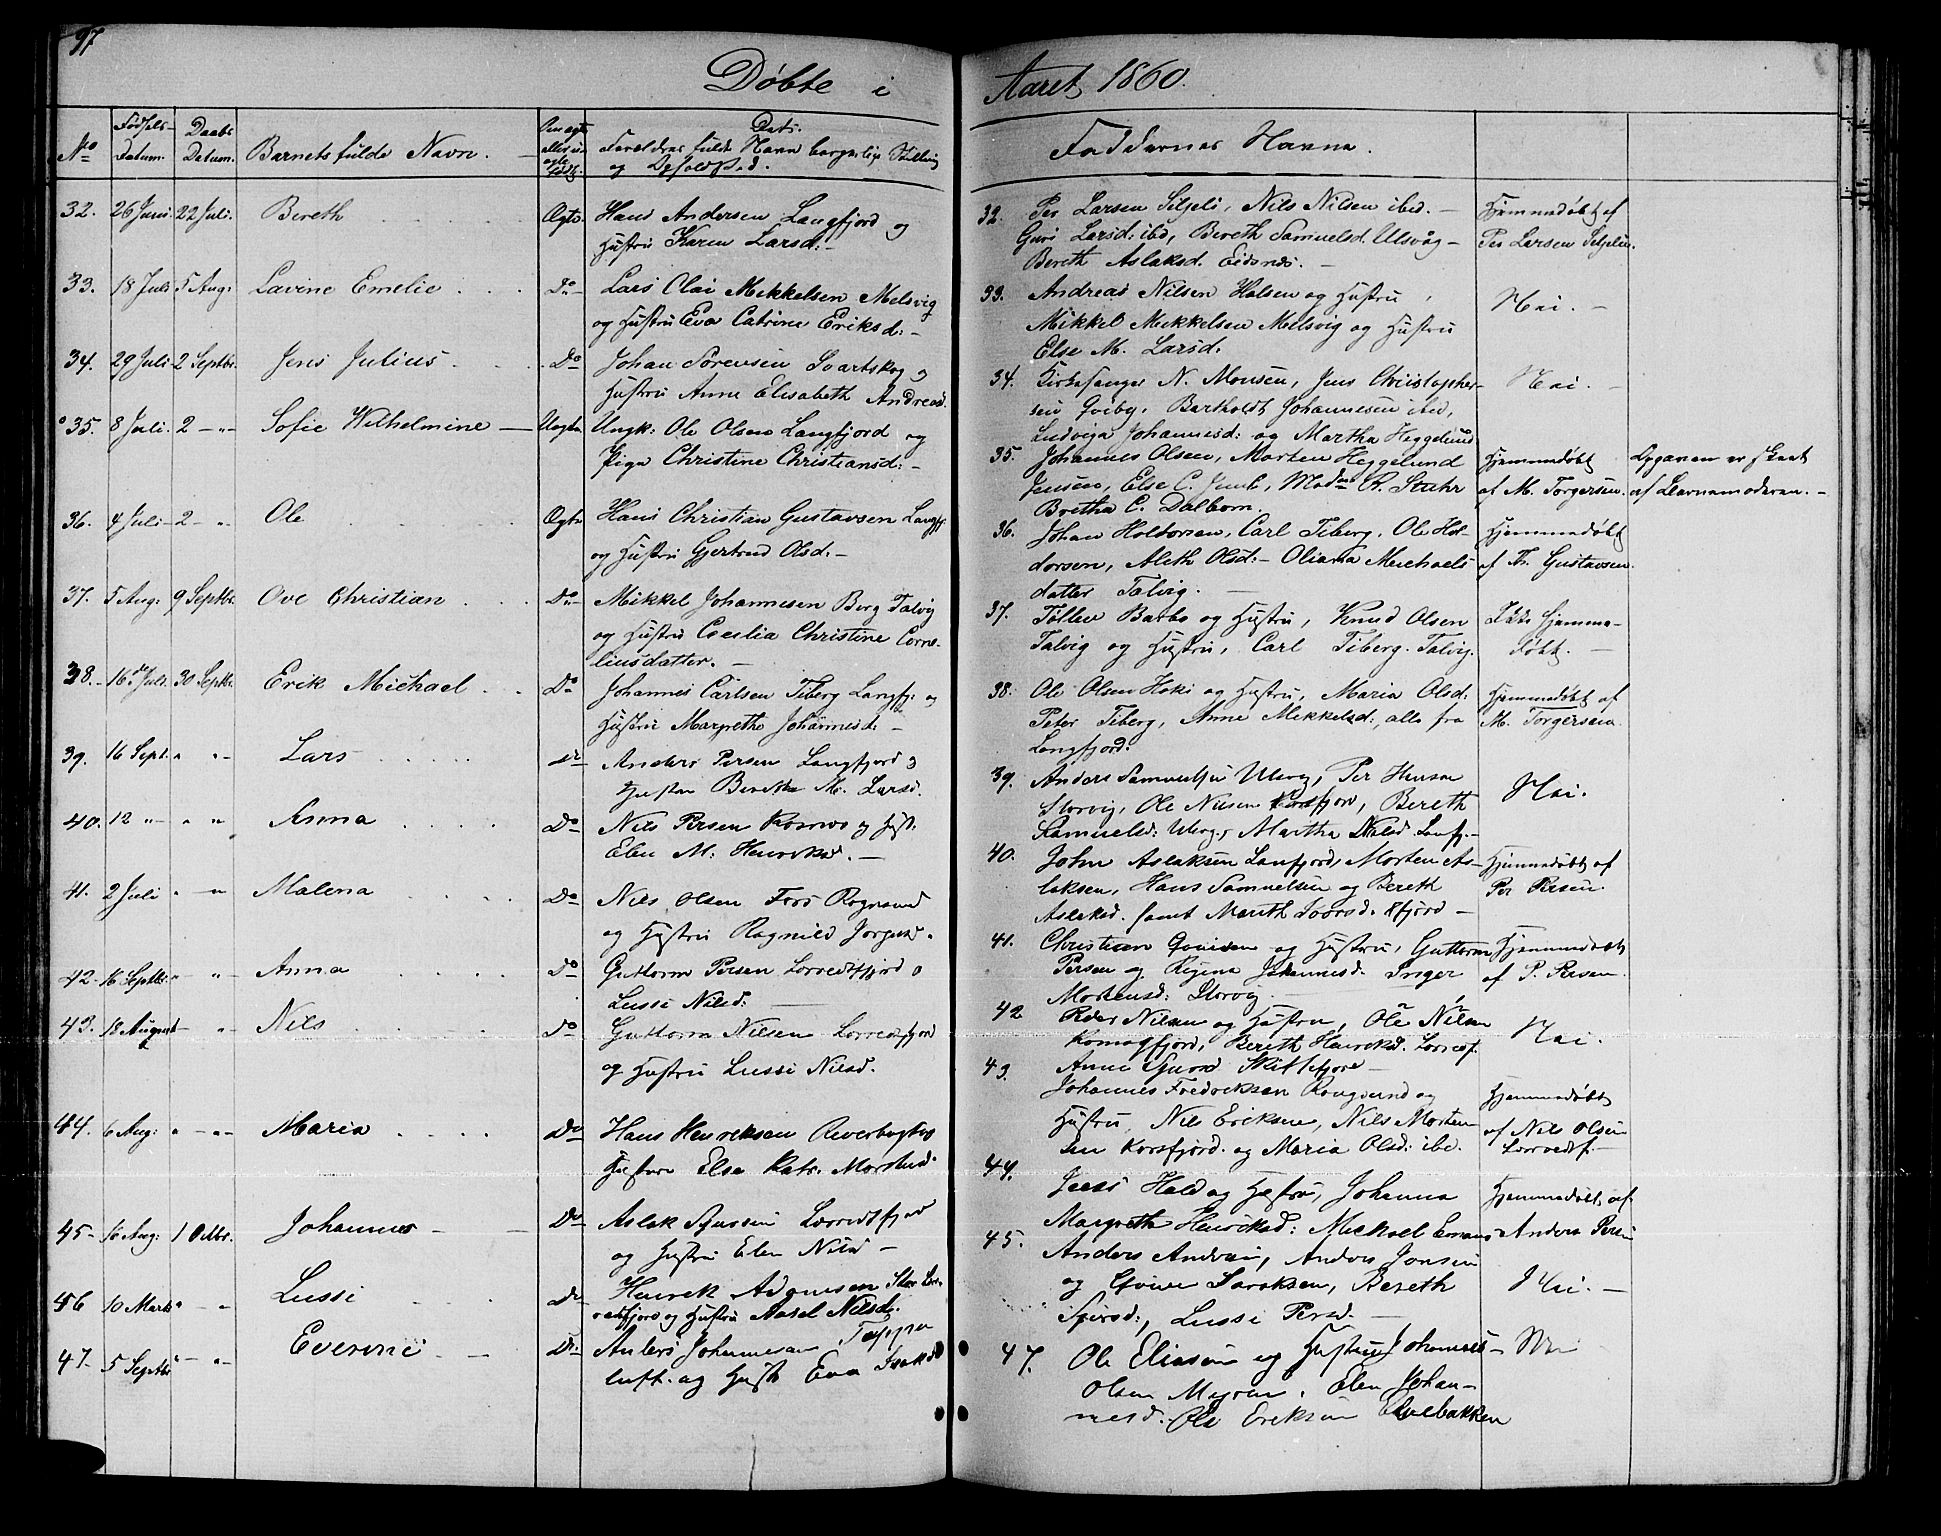 97
Døbte i Aaret 1860.
No Fødsels- Datum. Daabs Datum. Barnets fulde Navn. Om ægte eller uægte født. Dets Forældres fulde Navn borgerlige Stilling og Opholdssted.
Faddernes Navne.
32. 26 Juni. 22 Juli. Bereth Ægte. Hans Andersen Langfjord og
Hustru Karen Larsd: -
33. 18 Juli 5 Aug: Lavine Emelie Do Lars Olai Mikkelsen Melsvig
og Hustru Eva Catrine Eriksd: -
34. 29 Juli 2 Septbr. Jens Julius Do Johan Sørensen Svartskog og
Hustru Anne Elisabeth Andreasd.
35. 8 Juli. 2 - " - Sofie Wilhelmine - Uægte. Ungk: Ole Olsen Langfjord og
Pige Christine Christiansd: -
36. 4 Juli - 2 - " Ole Ægte Hans Christian Gustavsen Langfj.
og Hustru Gjertrud Olsd: -
37. 5 Aug: 9 Septbr. Ove Christian Do Mikkel Johannesen Berg Talvig
og Hustru Cecilia Christine Corne-
liusdatter. -
38. - 16de Juli. 30 Septbr. Erik Michael Do Johannes Carlsen Tiberg Langfj: og
Hustru Margrethe Johannesd: -
39. 16 Sept. " " - Lars Do Anders Persen Langfjord og
Hustru Berethe M. Larsd.
40. 12 " - " " Anna Do Nils Persen og Hust.
Elen M: Henriksd. -
41. 2 Juli " - " Malena Do Nils Olsen Fors Rognsund
og Hustru Ragnild
42 - 16 Septbr. " " - Anna Do Guttorm Persen Lerredsfjord o
Lussi Nilsd: -
43. 18 August - " - Nils Do Guttorm Nilsen Lerredsfjord
og Hustru Lussi Nilsd.
44. 6 Aug: " - " - Maria Do Hans Henriksen Reverbogt og
Hustru Else Katr.
45 - 16 Aug: 1 Octbr. Johannes - Do Aslak Lerredsfjord
og Hustru Elen Nilsd -
46 10 Marts " - " Lussi Do Henrik Adamsen Store Ler-
redsfjord og Hustru Aasel Nilsd.
47 - 5 Septbr " - " - Everine - Do Anders Johannesen, Tappe
luft. og Hust. Eva Isaksd
32. Per Larsen Seljeli, Nils Nilsen ibid. -
Guri Larsd: ibd, Bereth Samuelsd. Ulsvåg -
Bereth Aslaksd. Eidsnes. -
Hjemmedøbt af
Per Larsen Seljelie.
33. Andreas Nilsen Halsen og Hustru,
Mikkel Mikkelsen Melsvig og Hustru
Else M. Larsd.
Nei. -
34. Kirkesanger N. Monsen, Jens Christopher-
sen Qviby, Bartholdt Johannesen ibid,
Ludviga Johannesd: og Martha Heggelund
Nei. -
35. Johannes Olsen, Morten Heggelund
Jensen, Else C. Juul, Madm R. Stuhr
Bretha C. Dalbom.
Hjemmedøbt
af M. Torgersen.
Opgaven er skeet
af Barnemoderen. -
36. Johan Haldorsen, Carl Tiberg, Ole Hal-
dorsen, Aleth Olsd: - Oliana Michaels-
datter Talvig. -
Hjemmedøbt
af Th. Gustavsen.
37. Tollev Barbo og Hustru, Knud Olsen
Talvig og Hustru, Carl Tiberg. Talvig.
Ikke hjemme-
døbt. -
38. Ole Olsen Hoki og Hustru, Maria Olsd:
Peter Tiberg, Anne Mikkelsd:, alle fra
Langfjord.
Hjemmedøbt af
M. Torgersen
39. Anders Samuelsen Ulsvg, Per Hansen
Storvig, Ole Nilsen Korsfjord, Bereth
Samuelsd: Ulsvg, Martha Nilsd. Lanfj. -
Nei.
40. John Aslaksen Lanfjord, Morten As-
laksen, Hans Samuelsen og Bereth
Aslaksd. samt Marith fjord -
Hjemmedøbt af
Per Persen.
41. Christian og Hustru, Guttorm
Persen og Regina Johannesd. Inger
Mortensd: Storvig
Hjemmedøbt
af P. Persen
42 Peder Nilsen og Hustru, Ole Nilsen
Komagfjord, Bereth Henriksd. Lerredsf.
Anne Skillefjord -
Nei.
43. Johannes Fredriksen Rongsund og
Hustru, Nils Eriksen, Nils Morten-
sen Korsfjord. og Maria Olsd: ibd.
Hjemmedøbt
af Nils Olsen
Lerredsf. -
44. Jens Hald og Hustru, Johanna
Margrethe Henriksd: Mickael
Hjemmedøbt af
Anders Persen
45. Anders Andersen, Anders Jonsen
og Isaksen, Bereth
Lussi Persd. -
Nei. -
47. Ole Eliasen og Hustru, Johannes
Olsen Elen Johan-
nesd. Ole Eriksen Elvebakken
Nei